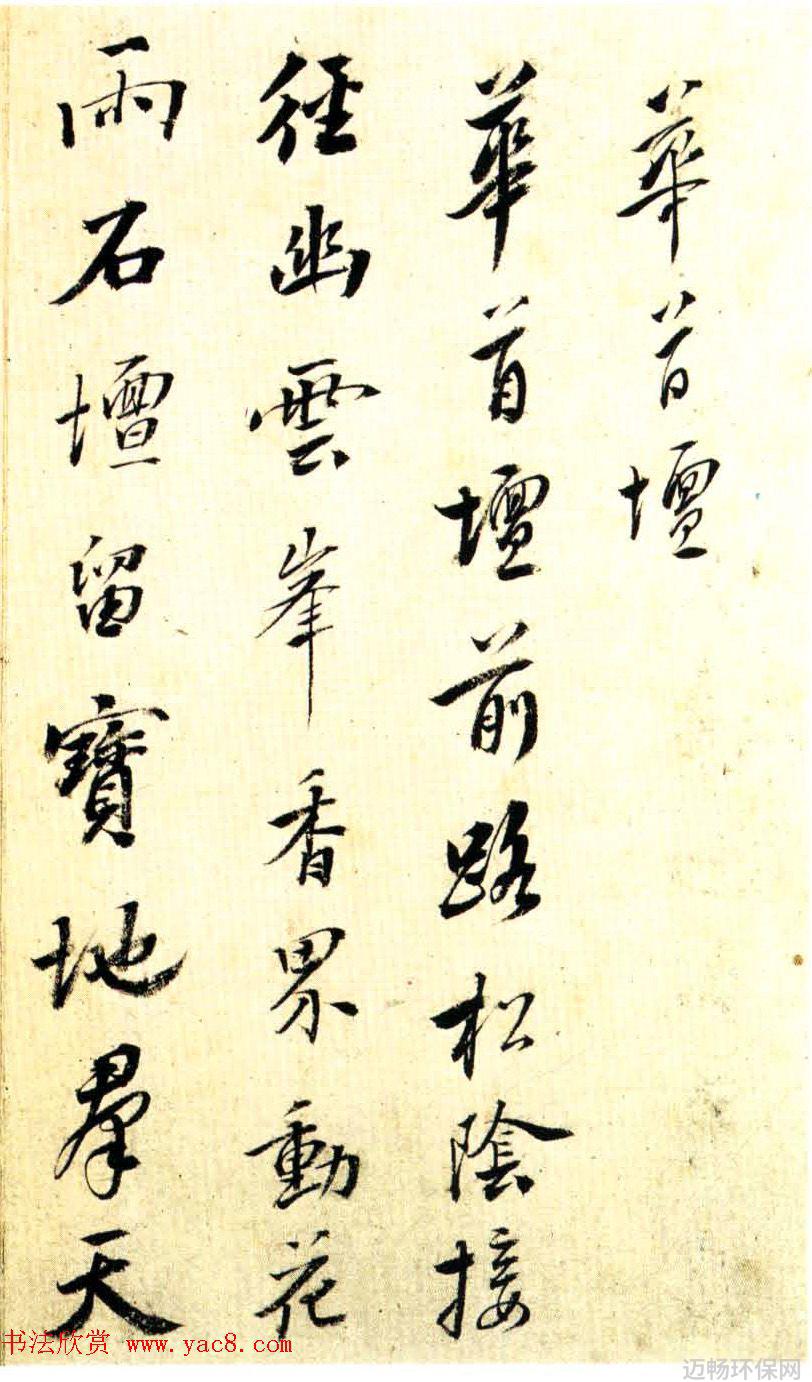 華首壇
華首壇前路松陰接
徑幽雲峯香界動花
雨石壇留寶地羣天
书法欣赏 www.yac8.com
迈畅环保网